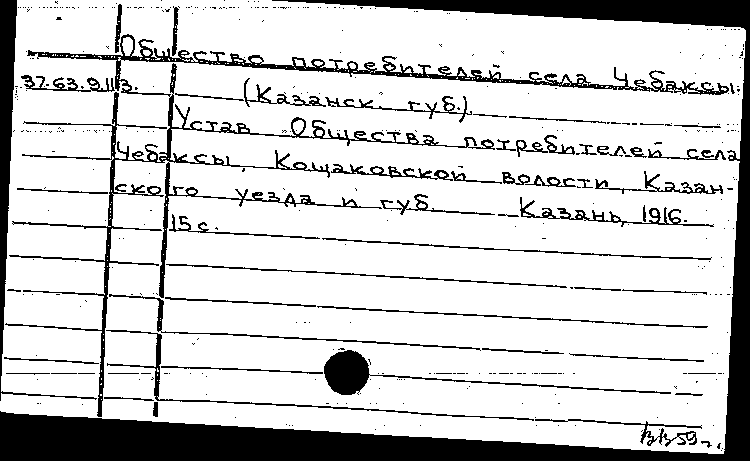 Общество потребителей села Чебаксы.
37.63.9.113. (Казанск. губ.)
Устав Общества потребителей села
Чебаксы, Кощаковской волости, Казан-
ского уезда и губ. Казань, 1916.
15 с.